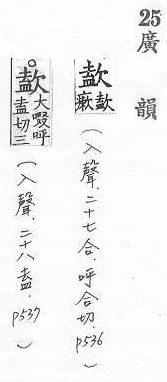 25
廣韻
(入聲.二十七合.呼合切.p536)
大啜呼
盍切三
(入聲.二十八盍.p537)